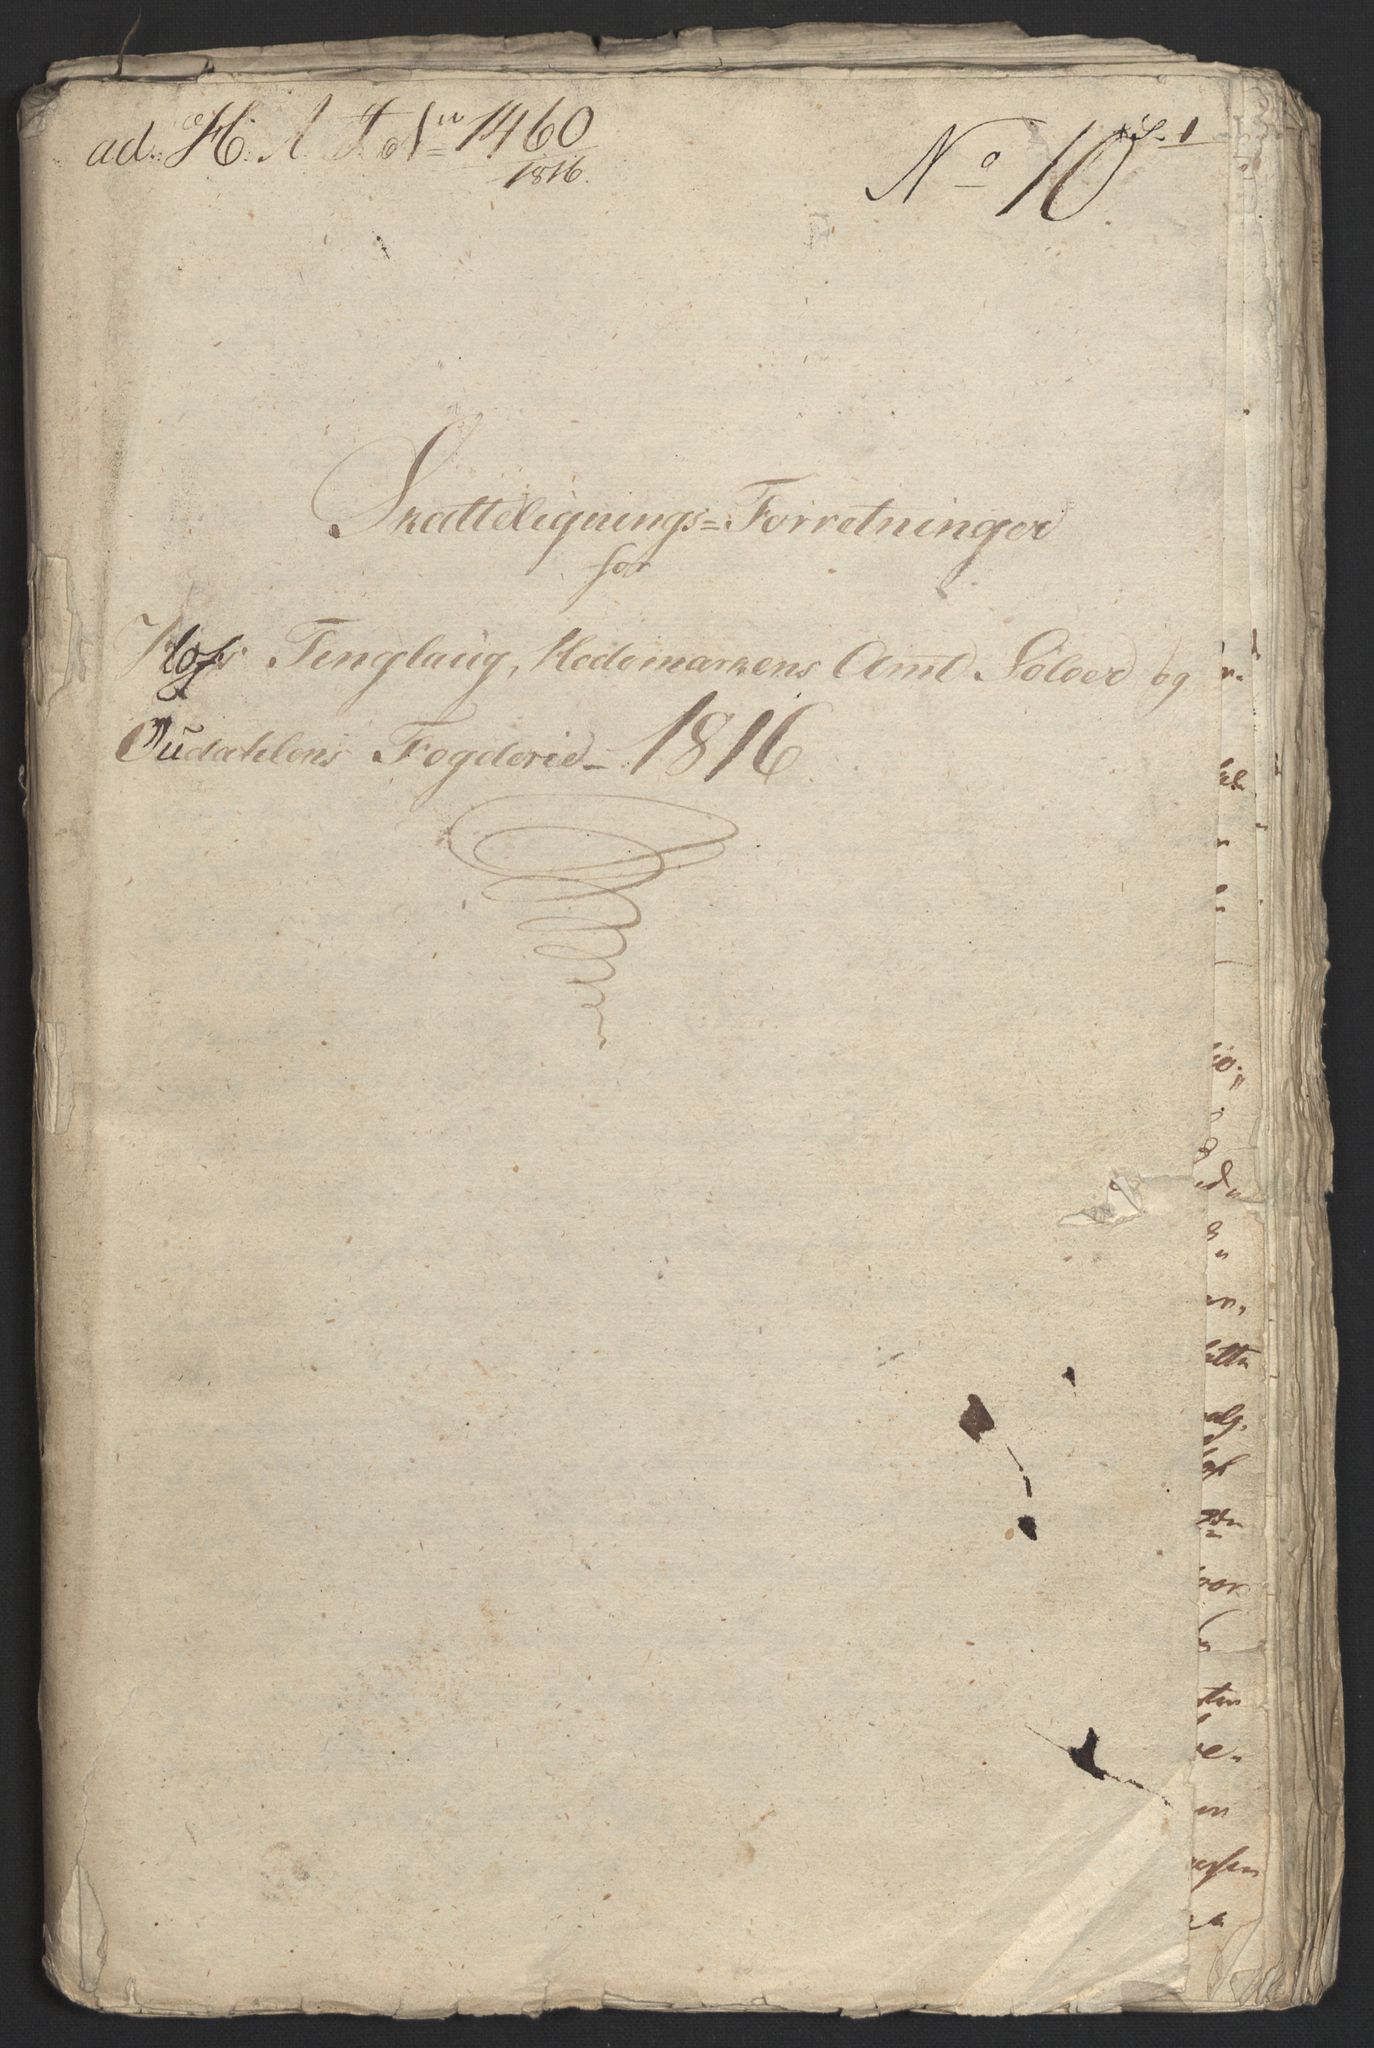 ad. H. A. No 1460
1816.
No 10
Skattelignings=Forretninger
for
Hofs Tinglaug, Hedemarkens Amt Soløer og
Oudahlens Fogderie - 1816